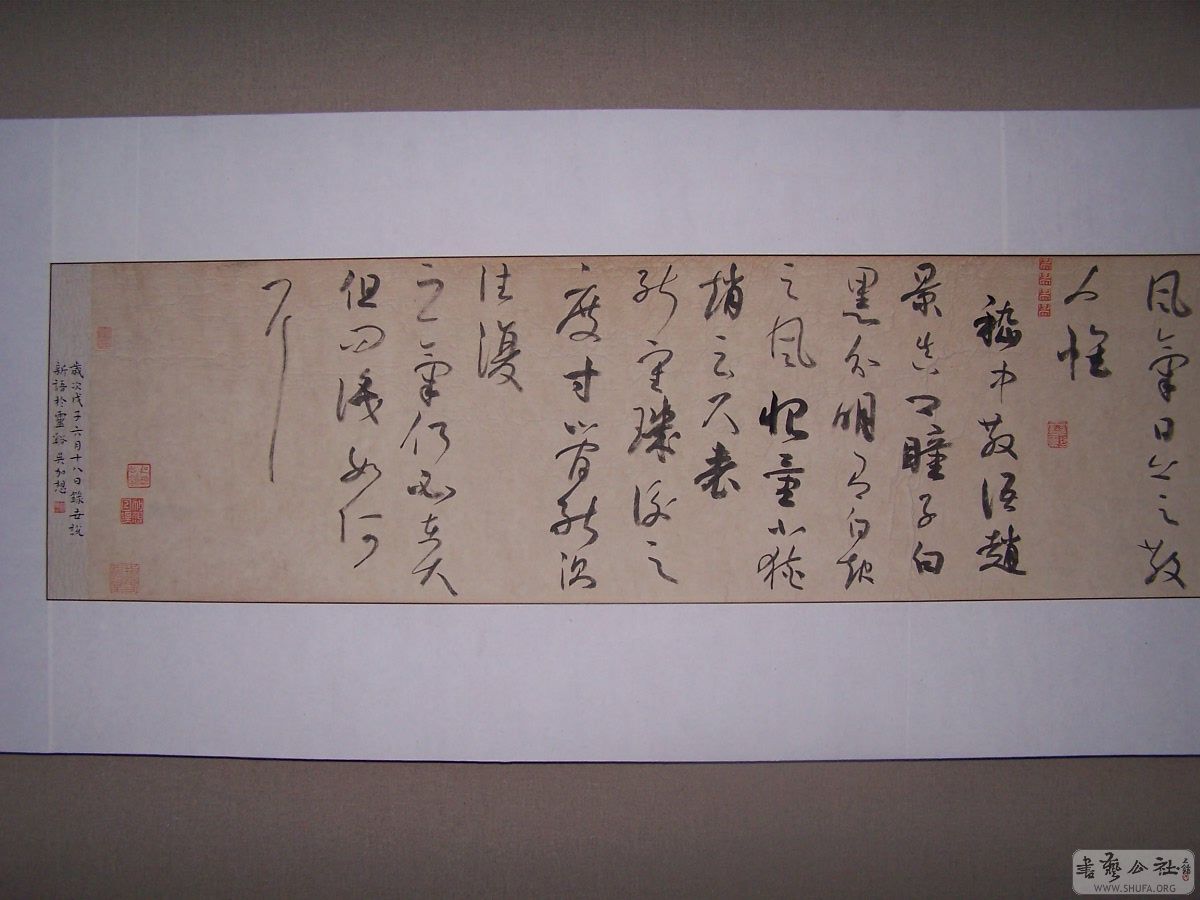 風氣日上足散
人懷
嵇中散語趙
景真卿瞳子白
黑分明有白起
之風恨量小狹
趙云尺表
能審璣衡之
度寸管能測
往復
之氣何必在大
但問識如何
耳
歲次戊子六月十八日錄世說
新語於靈谿吳加想
書藝公社
WWW.SHUFA.ORG